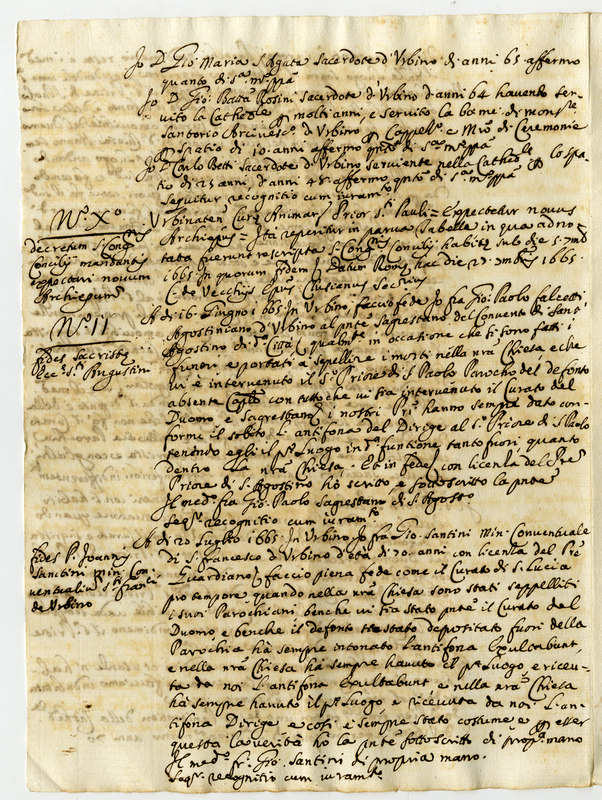 Jo D. Gio: Maria S. Agata Sacerdote d'Urbino di anni 65 affermo
quanto di s.a m.o pp.a
Jo D. Gio: Batt.a Rosini Sacerdote d'Urbino d'anni 64 havendo ser-
vito la Cathed.le p molti anni, e servito la bo: me: di mons.re
Santorio Arcivesc.o d'Urbino p Capell.o e Mro di Ceremonie
p spatio di 10. anni affermo qnto di s.a m.o pp.a
Jo D. Carlo Betti Sacerdote d'Urbino serviente nella Cathed.le p lo spa-
tio di 25 anni, d'anni 48 affermo qnto di s.a m.o pp.a
Sequitur recognitio cum iuram.to
N.o X.o
decretum S. Cong.nis
Concilij mandantis
expectari novum
Archiepum
Urbinaten Curę Animar Prior S.ti Pauli = Expectetur novus
Archiepus = Ita reperitur in parva Tabella in qua adno-
tata fuerunt rescripta S. Congnis Concilij habitę sub die 5. xmb
1665 in quorum fidem Datum Romę hac die 23. xmbris 1665.
C. de Vecchijs Epus Clusianus Secrius
N.o 11
Fides Sacristę
Ecc.ę S.ti Augustini
A di 16. Giugno 1665 In Urbino, faccio fede Jo fra Gio: Paolo falcotti
Agostiniano d'Urbino al pnte sagrestano del Convento di Sant'
Agostino di d.a Città, qualm.te in occatione che si sono fatti i
funeri e portati a sepellire i morti nella nrã Chiesa, e che
vi è intervenuto il S.r Priore di S. Paolo Parocho del defonto
absente con tutto che vi sia intervenuto il Curato del
Duomo e Sagrestano, i nostri Pri hanno sempre dato con-
forme il solito l'antifona del Dirige al S.r Priore di S. Paolo
tenendo egli il p.o luogo in d.a funtione tanto fuori quanto
dentro la nrã Chiesa. Et in fede con licenza del Pre
Priore di S. Agostino hò scritto e sottoscritto la pnte
Il med.o fra Gio: Paolo sagrestano di S. Agosto
Seq.r recognitio cum iuram.to
Fides P. Joannis
Santini Min: Con-
ventualiũ S.ti Franci
de Urbino
A di 20 Luglio 1665. In Urbino Jo fra Gio: Santini Min: Conventuale
di S. Francesco d'Urbino d'età di 70. anni con licenza del Pre
Guardiano faccio piena fede come il Curato di S. Lucia
pro tempore quando nella nrã Chiesa sono stati seppelliti
i suoi Parochiani benche vi sia stato pnte il Curato del
Duomo e benche il defonto sia stato depositato fuori della
Parochia hà sempre intonato l'antifona Exultabunt,
e nella nrã Chiesa hà sempre havuto il p.o luogo e riceu-
ta da noi l'antifona Exultabunt e nella nrã Chiesa
hà sempre havuto il p.o luogo, e ricevuta da noi l'an-
tifona Dirige e così è sempre stato costume e p esser
questa la verità hò la pnte sottoscritto di prop.a mano
Il med.o fr. Gio: Santini di propria mano.
Seq.r recognitio cum iuram.to